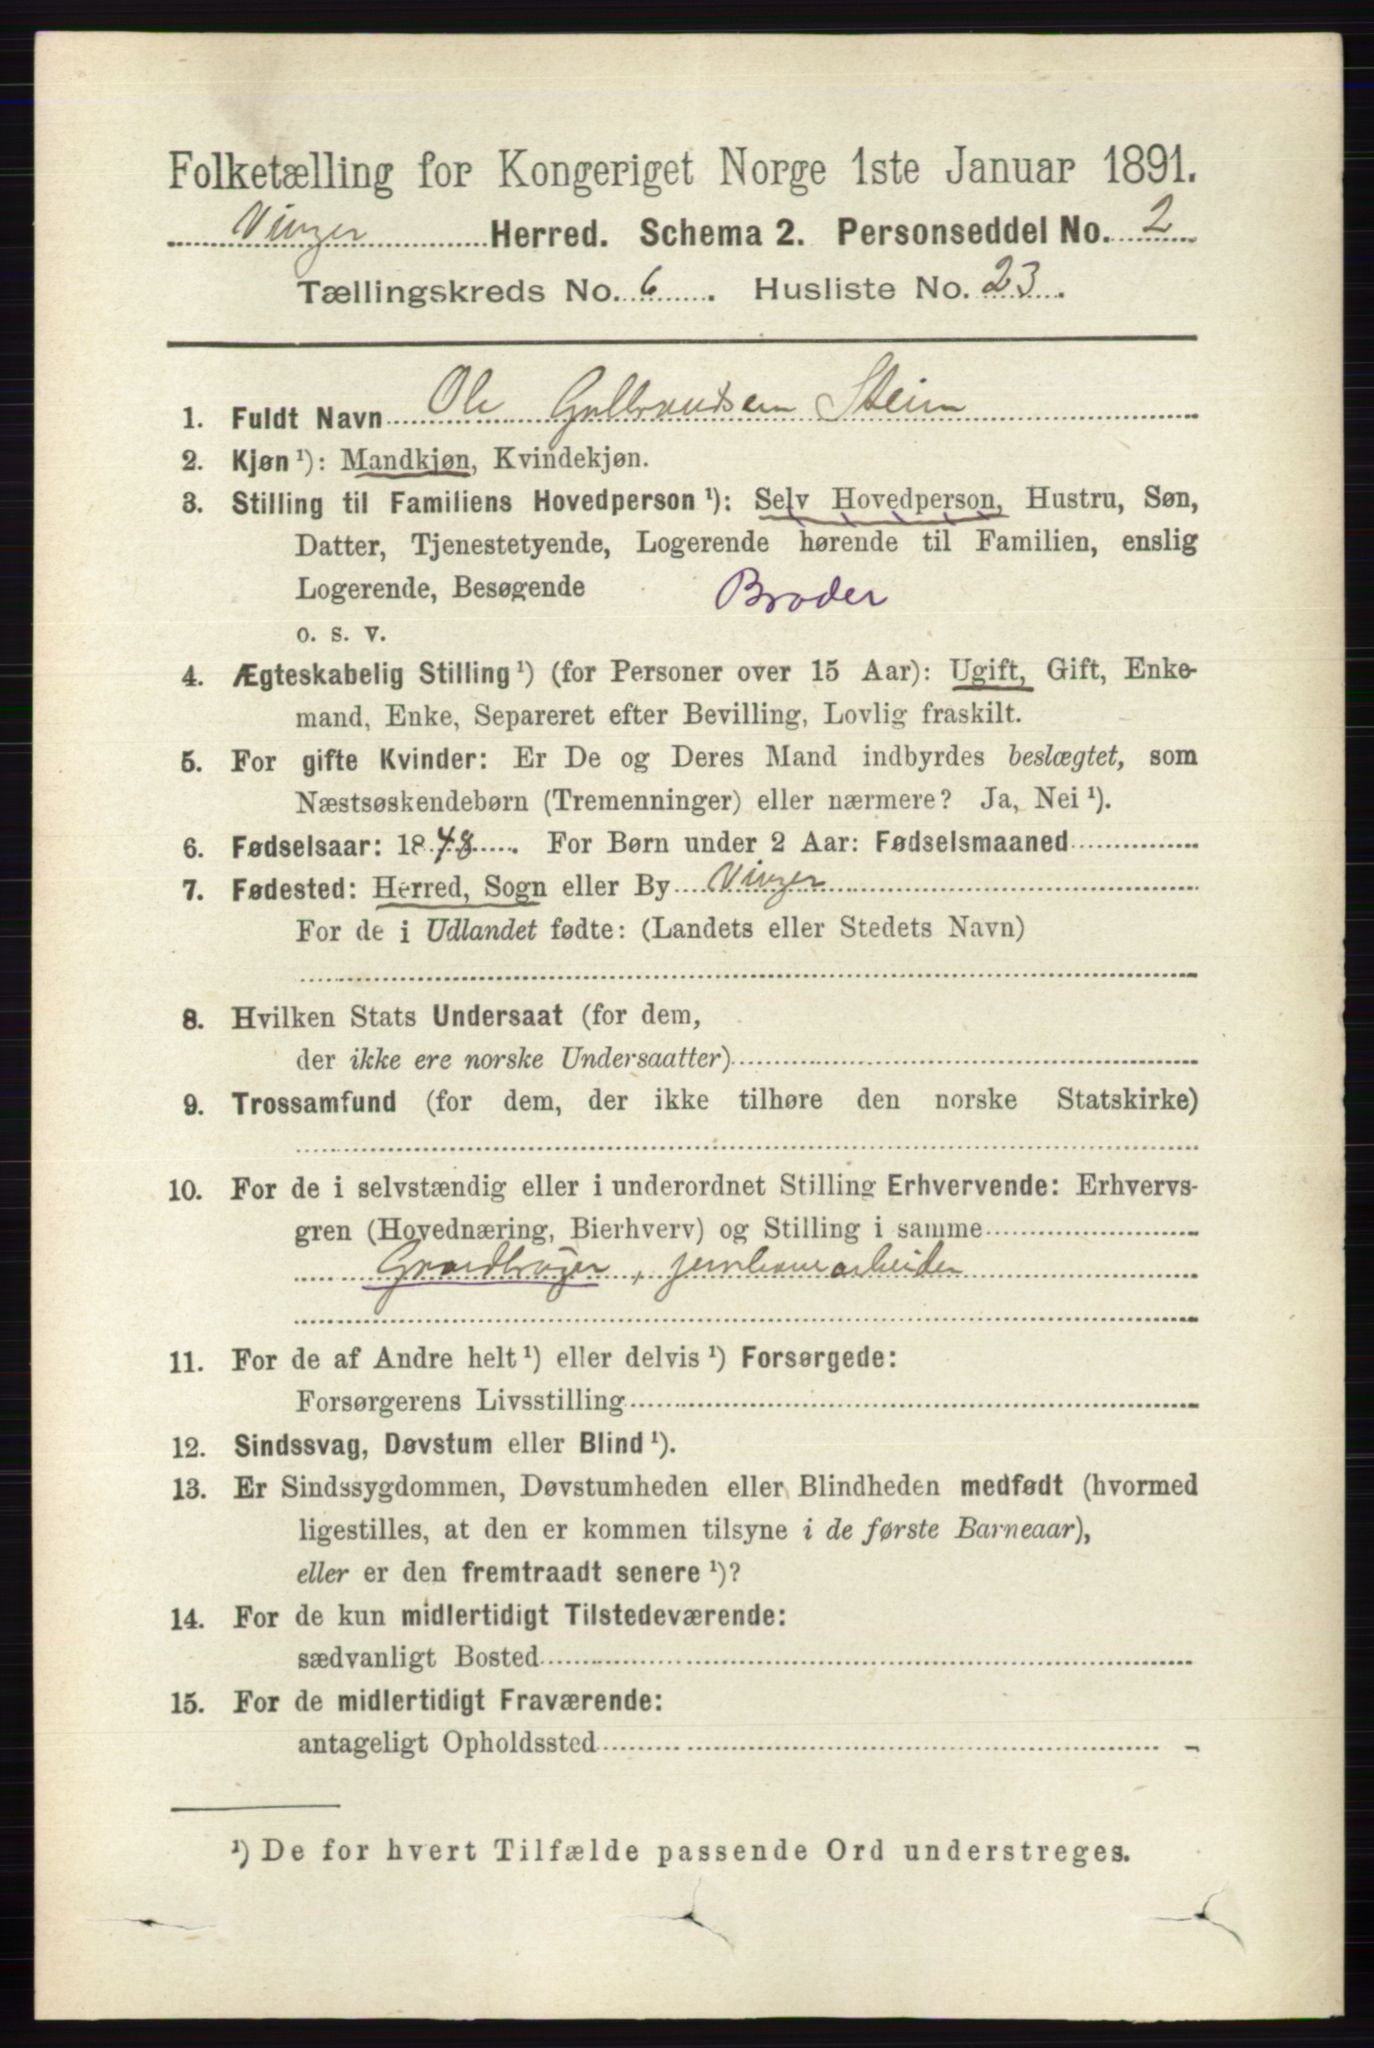 Folketælling for Kongeriget Norge 1ste Januar 1891.
Vinger Herred. Schema 2. Personseddel No. 2
Tællingskreds No. 6. Husliste No. 23.
1. Fuldt Navn Ole Gulbrandsen Stein
2. Kjøn ¹): Mandkjøn, Kvindekjøn.
3. Stilling til Familiens Hovedperson ¹): Selv Hovedperson, Hustru, Søn,
Datter, Tjenestetyende, Logerende hørende til Familien, enslig
Logerende, Besøgende Broder
o. s. v.
4. Ægteskabelig Stilling ¹) (for Personer over 15 Aar): Ugift, Gift, Enke-
mand, Enke, Separeret efter Bevilling, Lovlig fraskilt.
5. For gifte Kvinder: Er De og Deres Mand indbyrdes beslægtet, som
Næstsøskendebørn (Tremenninger) eller nærmere? Ja, Nei ¹).
6. Fødselsaar: 1848. For Børn under 2 Aar: Fødselsmaaned
7. Fødested: Herred, Sogn eller By Vinger
For de i Udlandet fødte: (Landets eller Stedets Navn)
8. Hvilken Stats Undersaat (for dem,
der ikke ere norske Undersaatter)
9. Trossamfund (for dem, der ikke tilhøre den norske Statskirke)
10. For de i selvstændig eller i underordnet Stilling Erhvervende: Erhvervs-
gren (Hovednæring, Bierhverv) og Stilling i samme
Gaardbruger, jernbanearbeider
11. For de af Andre helt ¹) eller delvis ¹) Forsørgede:
Forsørgerens Livsstilling
12. Sindssvag, Døvstum eller Blind ¹).
13. Er Sindssygdommen, Døvstumheden eller Blindheden medfødt (hvormed
ligestilles, at den er kommen tilsyne i de første Barneaar),
eller er den fremtraadt senere ¹)?
14. For de kun midlertidigt Tilstedeværende:
sædvanligt Bosted
15. For de midlertidigt Fraværende:
antageligt Opholdssted
¹) De for hvert Tilfælde passende Ord understreges.